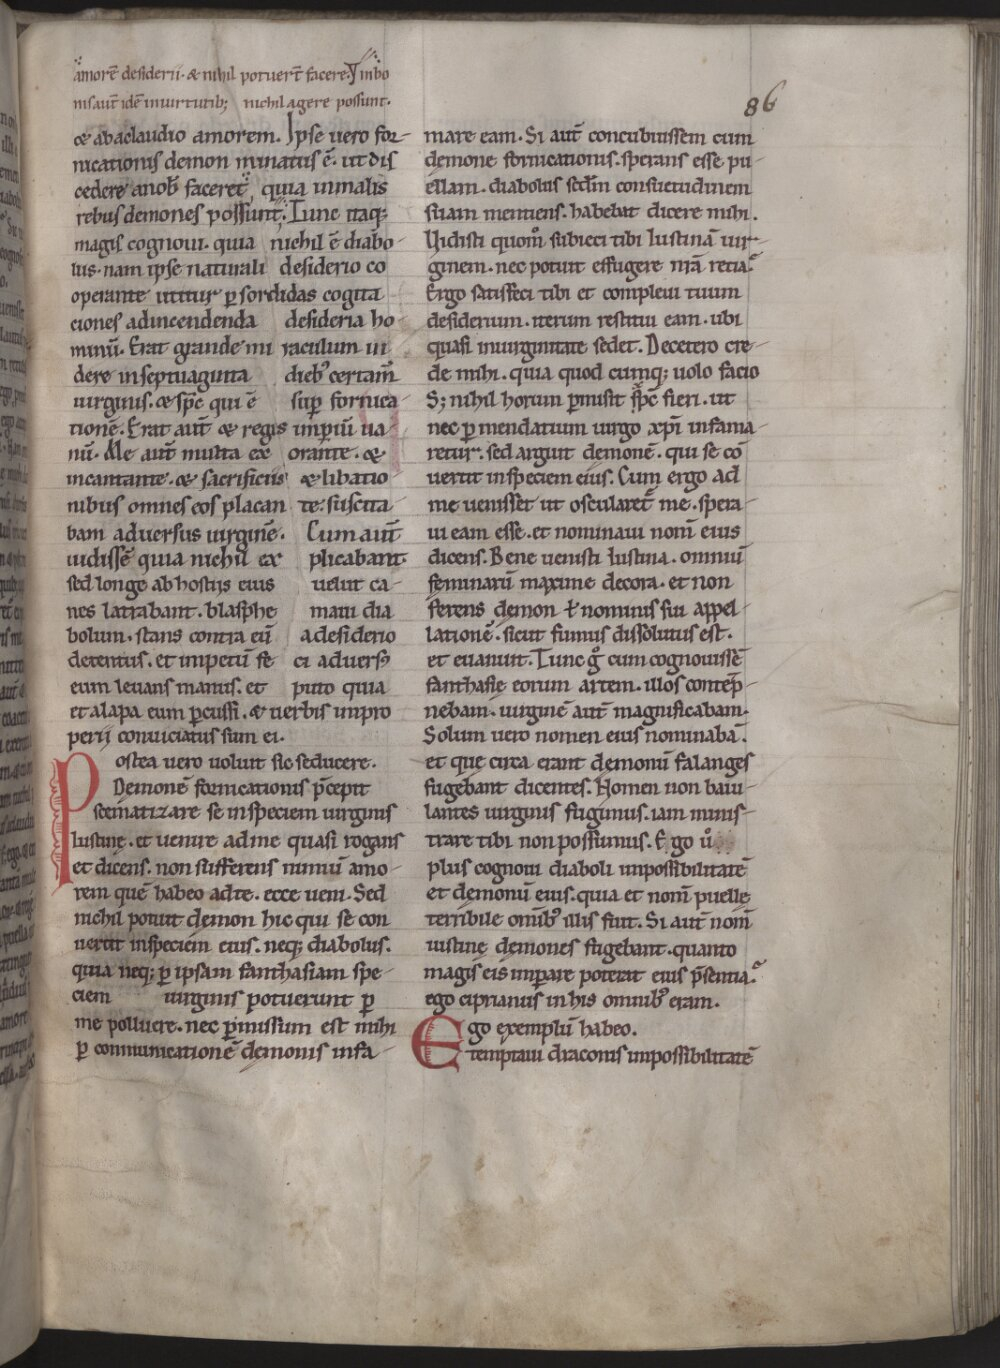 amorē desiderii · & nihil potuerт̄ facere · In bo
nis aut̄ idē in uirtutib; nichil agere possunt.
86
& ab aclaudio amorem. Ipse uero for-
nicationis demon minatus ē · ut dis
cedere anob̄ faceret, quia in malis
rebus demones possunt. Tunc itaq;
magis cognoui · quia nichil ē diabo-
lus · nam ipse naturali desiderio co
operante utitur p̱ sordidas cogita-
ciones adincendenda desideria ho-
minū. Erat grande mi raculum ui-
dere in septuaginta dieb; certam̄
uirginis · & sp̄c qui ē sup̱ fornica-
tionē. Erat aut̄ & regis imp̱iū ua-
nū. Me aut̄ multa ex orante · &
incantante · & sacrificiis & libatio-
nibus omnes eos placan te · suscita-
bam aduersus uirginē. Cum aut̄
uidissē quia nichil ex plicabant·
sed longe ab hostiis eius uelut ca-
nes latrabant · blasphe maui dia
bolum · stans contra eū a desiderio
detentus · et impetū fe ci aduers;
eum leuans manus · et puto quia
et alapa eum p̱cussi · & uerbis impro
perii conuiciatus sum ei.
Postea uero uoluit sic seducere.
Demonē fornicationis p̄cepit
scematizare se in speciem uirginis
Iustinę · et uenire ad me quasi rogans
et dicens · non sufferens nimiū amo-
rem quē habeo ad te · ecce ueni. Sed
nichil potuit demon hic qui se con
uertit in speciem eius · neq; diabolus.
quia neq; p̱ ipsam fanthasiam spe-
ciem uirginis potuerunt p̱
me polluere · nec p̱missum est mihi
p̱ communicationē demonis infa-
mare eam. Si aut̄ concubuissem cum
demone fornicationis · sperans esse pu-
ellam · diabolus sc̄dm consuetudinem
suam mentiens · habebat dicere mihi.
Uidisti quom̊ subieci tibi Iustinā uir-
ginem · nec potuit effugere nr̄a retia.
Ergo satisfeci tibi et compleui tuum
desiderium · iterum restitui eam · ubi
quasi in uirginitate sedet. Decetero cre-
de mihi · quia quod cumq; uolo facio
S; nihil horum p̱misit sp̄c fieri · ut
nec p̱ mendatium uirgo xp̄i infama-
retur · sed arguit demonē · qui se cō
uertit in speciem eius. Cum ergo ad
me uenisset ut oscularet̄ me · spera-
ui eam esse · et nominaui nom̄ eius
dicens. Bene uenisti Iustina · omniū
feminarū maxime decora · et non
ferens demon ł nominis sui appel-
lationē · sicut fumus dissolutus est.
et euanuit. Tunc g̊ cum cognouissē
fanthasię eorum artem · illos contēp-
nebam · uirginē aut̄ magnificabam.
Solum uero nomen eius nominabā.
et que circa erant demonū falanges
fugebant dicentes. Nomen non baiu-
lantes uirginis fugimus · iam minis-
trare tibi non possumus. Ergo ů
plus cognoui diaboli impossibilitatē
et demonū eius · quia et nom̄ puelle
terribile omīb; illis fuit. Si aut̄ nom̄
iustinę demones fugebant · quanto
magis eis imp̱are poterit eius p̄sentia.
ego ciprianus in his omnib; eram.
Ego exemplū habeo.
temptaui draconis impossibilitatē